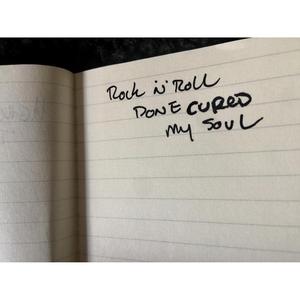 Rock 'n' Roll
DONE CURED
My SOUL